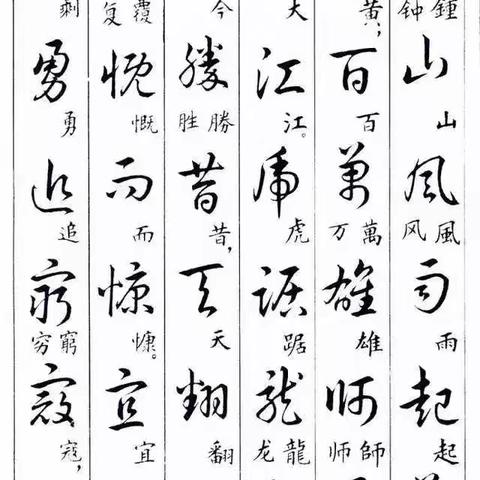 钟鍾山山風风風雨雨起起
黄,百百萬万萬雄雄師师師
大江江。虎虎踞踞龍龙龍
今勝胜勝昔昔,天天翻翻
复覆慨慨而而慷慷。宜宜
剩勇勇追追窮穷窮寇寇,